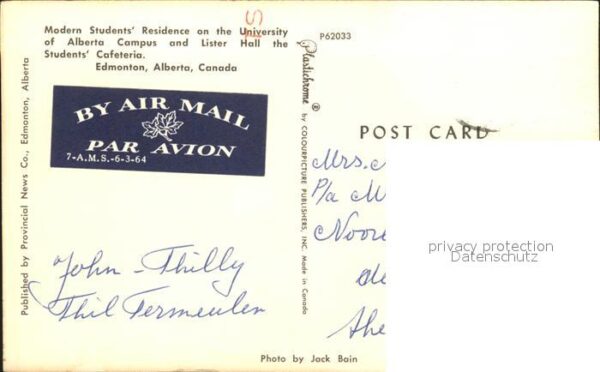 Modern Students' Residence on the University
of Alberta Campus and Lister Hall the
Students' Cafeteria.
Edmonton, Alberta, Canada
Published by Provincial News Co., Edmonton, Alberta
BY AIR MAIL
PAR AVION
7-A.M.S.-6-3-64
John - Thilly
Thil Termeulen
Photo by Jack Bain
P62033
Plastichrome ® by COLOURPICTURE PUBLISHERS, INC. Made in Canada
POST CARD
Mrs.
P/a M
Noor
de
the
privacy protection
Datenschutz